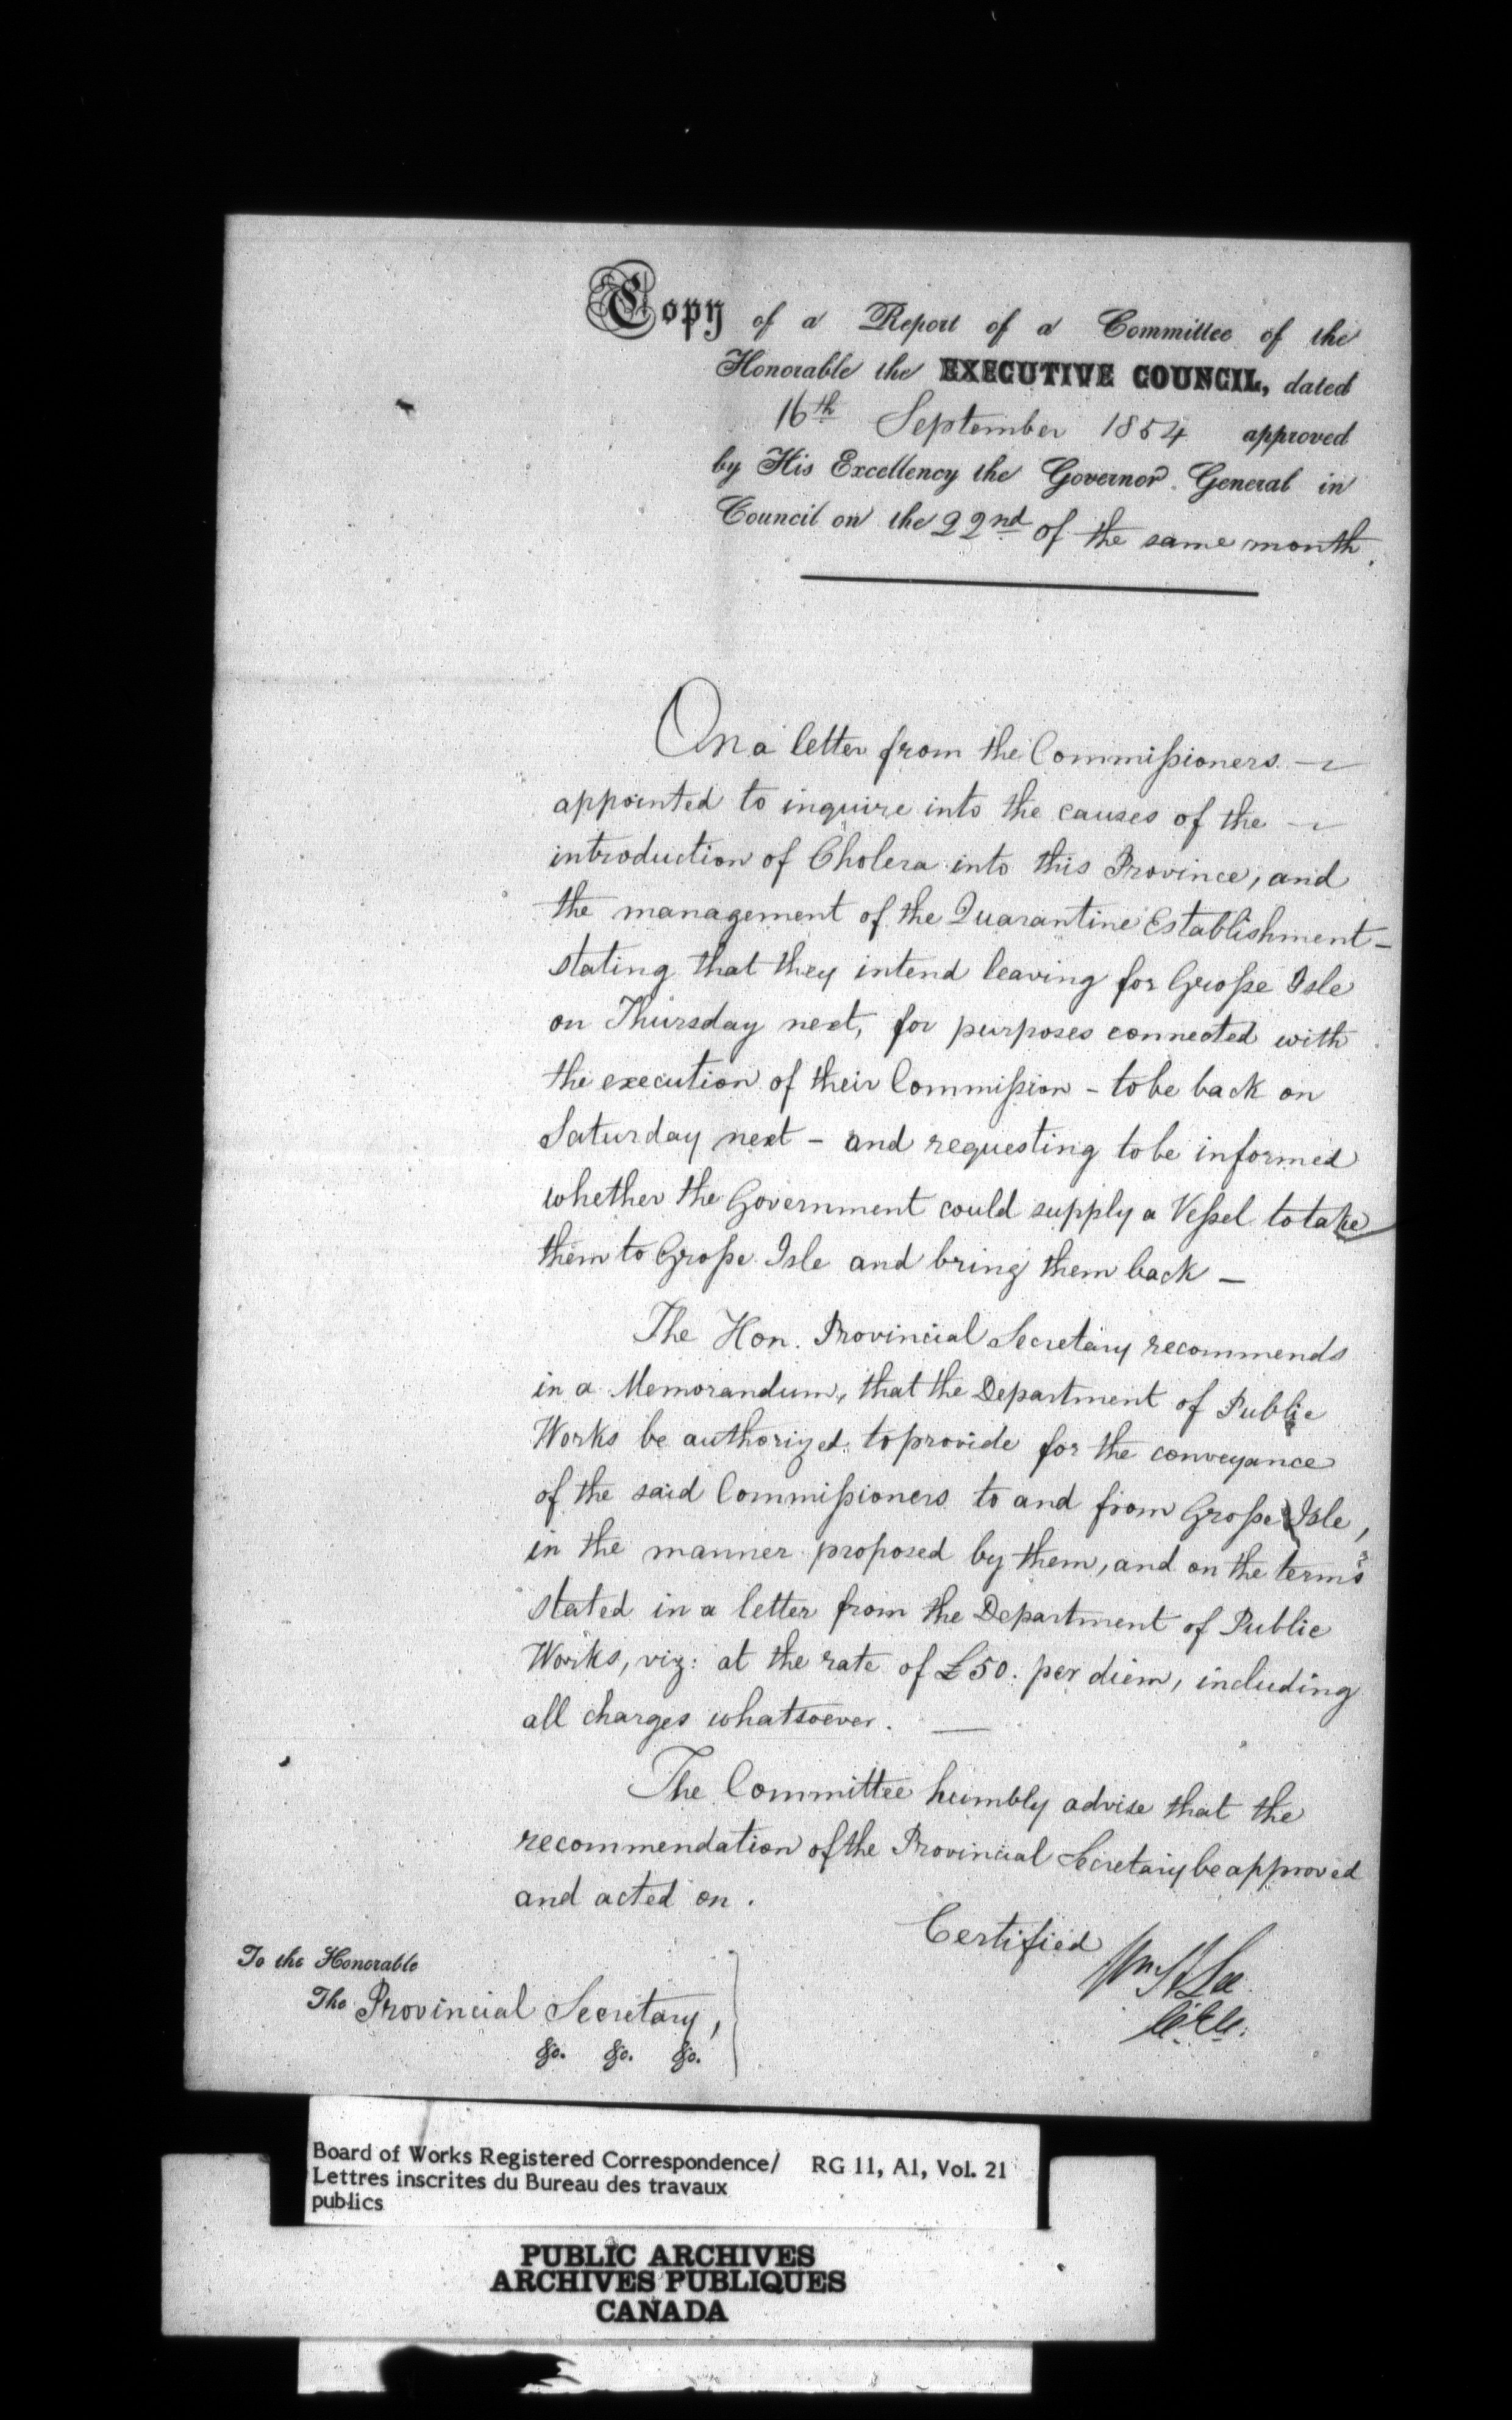 Copy of a Report of a Committee of the
Honorable the EXECUTIVE COUNCIL, dated
16th September 1854 approved
by His Excellency the Governor General in
Council on the 22nd of the same month.
On a letter from the Commißioners —
appointed to inquire into the causes of the —
introduction of Cholera into this Province, and
the management of the Quarantine Establishment –
stating that they intend leaving for Große Isle
on Thursday next, for purposes connected with
the execution of their Commißion – to be back on
Saturday next – and requesting to be informed
whether the Government could supply a Veßel to take
them to Große Isle and bring them back –
The Hon. Provincial Secretary recommends
in a Memorandum, that the Department of Public
Works be authorized to provide for the conveyance
of the said Commißioners to and from Große Isle,
in the manner proposed by them, and on the terms
stated in a letter from the Department of Public
Works, viz: at the rate of £50. per diem, including
all charges whatsoever. —
The Committee humbly advise that the
recommendation of the Provincial Secretary be approved
and acted on.
Certified
Wm H Lee
C.E.C.
To the Honorable
The Provincial Secretary,
&c. &c. &c.
Board of Works Registered Correspondence/ RG 11, A1, Vol. 21
Lettres inscrites du Bureau des travaux
publics
PUBLIC ARCHIVES
ARCHIVES PUBLIQUES
CANADA